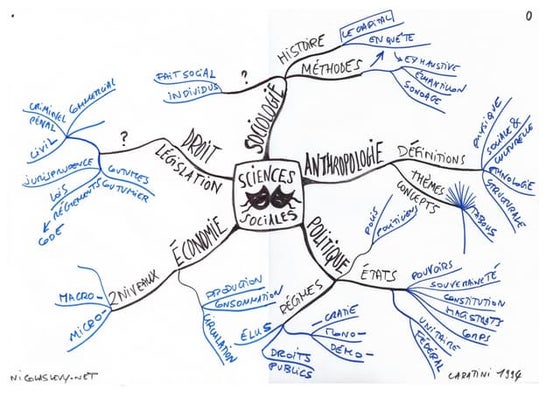 HISTOIRE
LE CAPITAL
ENQUÊTE
MÉTHODES
EXHAUSTIVE
ÉCHANTILLON
SONDAGE
?
FAIT SOCIAL
INDIVIDUS
SOCIOLOGIE
COMMERCIAL
CRIMINEL
PÉNAL
CIVIL
?
DROIT
LÉGISLATION
JURISPRUDENCE
LOIS
RÉGLEMENTS
CODE
COUTUMES
COUTUMIER
ANTHROPOLOGIE
DÉFINITIONS
PHYSIQUE
SOCIALE &
CULTURELLE
ETHNOLOGIE
STRUCTURALE
THÈMES
CONCEPTS
TABOUS
SCIENCES
SOCIALES
ÉCONOMIE
2 NIVEAUX
MACRO-
MICRO-
PRODUCTION
CONSOMMATION
CIRCULATION
POLITIQUE
POLIS
POLITIKOS
ÉTATS
POUVOIRS
SOUVERAINETÉ
CONSTITUTION
MAGISTRATS
CORPS
UNITAIRE
FÉDÉRAL
RÉGIMES
ÉLUS
DROITS
PUBLICS
CRATIE
MONO-
DÉMO-
NICOLASLEVY.NET
CARATINI 1994